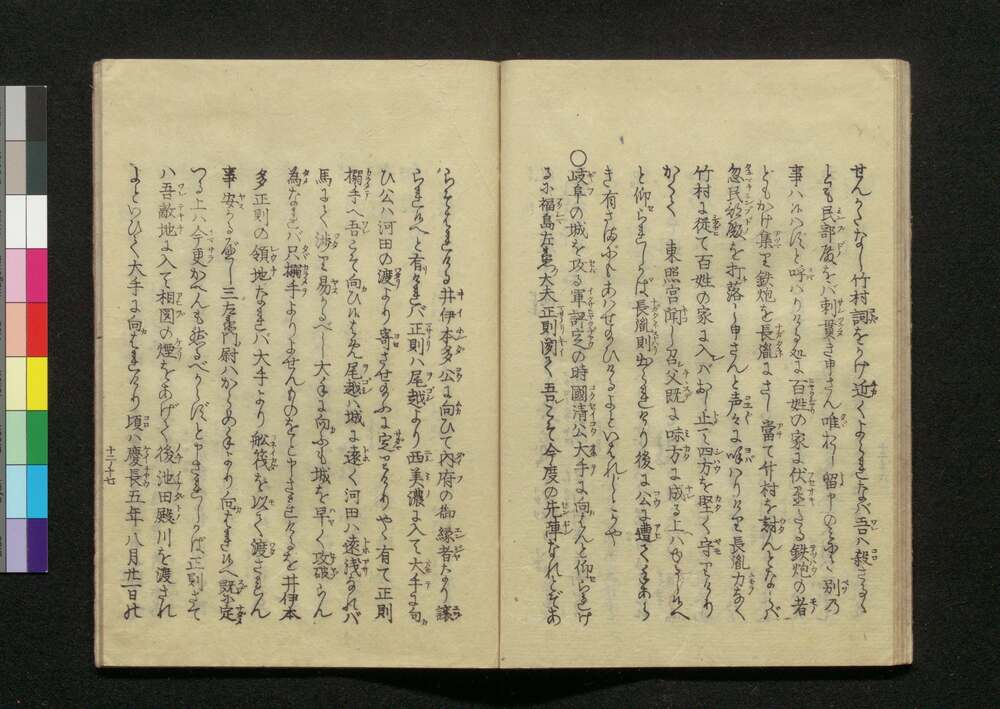 せんかたなし竹村詞をかけ近くよらるゝならバ吾ハ殺さるゝ
とも民部殿をバ刺貫き申さん唯押し留申のミにて別の
事ハ候ハずと呼ハりける処に百姓の家に伏置たる鉄炮の者
どもかけ集り鉄炮を長胤にさし當て竹村を討んとならバ
忽民部殿を打落し申さんと声々に呼ハりけり長胤力なく
竹村に従て百姓の家に入バおし止て四方を堅く守りけり
かくて　東照宮聞し召父既に味方に成る上ハゆるすべし
と仰られしかば長胤則出られけり後に公に遭て
き有さまに
〇岐阜の城を攻る軍評定の時國清公大手に向んと仰られけ
るに福島左衛門大夫正則聞て吾こそ今度の先陣なれとぞあ
らそはれける井伊本多公に向ひて内府の御縁者なり譲
られ候へと有けれバ正則ハ尾越より西美濃に入て大手に向
ひ公ハ河田の渡より寄させ給ふに定りけりやゝ有て正則
搦手へ吾こそ向ひ候はめ尾越ハ城に遠く河田ハ遠浅なれバ
馬にて渉り易かるべし大手に向ふとも城を早く攻破らん
為なれバ只搦手よりよせんものをと申されけるを井伊本
多正則の領地なれバ大手より舩筏を以て渡さるゝ
事安かるべし三左衛門尉ハからめ手より向はれ候へ既に定
つる上ハ今更かへんも然るべからずと申されしかば正則さて
ハ吾敵地に入て相図の煙をあげて後池田殿川を渡され
よといひて大手に向はれけり頃ハ慶長五年八月廿一日の
十二ノ十七